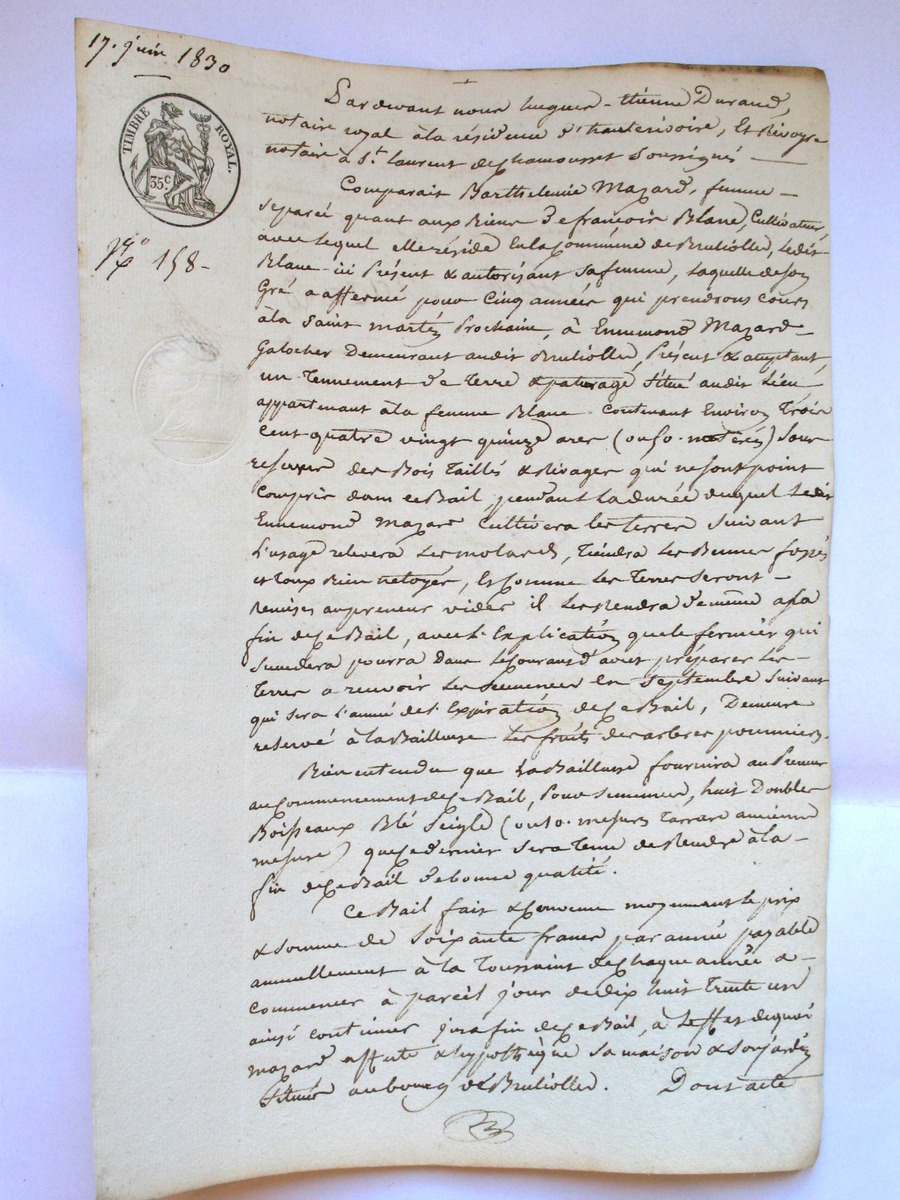 17. juin 1830
TIMBRE ROYAL.
35c
158-
Pardevant nous hugues-étienne Durand,
notaire royal à la résidence d'hauterivoire, Et Rivoyre
notaire à St. laurent de chamousset Soussignés
Comparait Barthelemie Mazard, femme
Separée quant aux Biens De françois Blanc, Cultivateur,
avec lequel elle réside En la Commune de Brullolle, ledit
Blanc ici Présent & autorisant sa femme, laquelle de son
Gré a affermé pour Cinq années qui prendront cours
à la Saint martin Prochaine, à Ennemond Mazard
Galocher Demeurant audit Brullolle, Présent & acceptant,
un Tennement De Terre & paturage Situé audit Lieu
appartenant à la femme Blanc Contenant Environ Trois
Cent quatre vingt quinze ares (ou 50. metérés) Sous
reserve des Bois Taillis & Rivages qui ne sont point
Compris dans ce Bail, pendant la durée duquel Ledit
Ennemond Mazard Cultivera les terres Suivant
L'usage relevera Les molards, Tiendra Les fossés
et Bien netoyés, Et Comme Les Terres Seront
Remises au preneur vides il Les Rendra De même a la
fin de Ce Bail, avec L'Explication que le fermier qui
Succedera pourra Dans le Courant d'aout préparer Les
Terres a recevoir Les Semences En Septembre Suivant
qui sera L'année de L'Expiration de Ce Bail, Demeure
reservé à la Bailleuse Les fruits des arbres pommiers.
Bien entendu que La Bailleuse fournira au Preneur
au Commencement de Ce Bail, Pour Semences, huit Doubles
Boisseaux Blé Seigle (ou 10. mesures Tarare ancienne
mesure) que Ce dernier Sera Tenu de Rendre à la
fin de Ce Bail De bonne qualité.
Ce Bail fait & Convenu moyennant le prix
& Somme de Soixante francs par année payable
annuellement à la Toussaint de Chaque année a
Commencer à pareil jour de dix huit Trente un
ainsi continuer jusqu'a fin de Ce Bail, à L'effet de quoi
Mazard affecte & hypothèque Sa maison & Son jardin
Situés au bourg de Brullolle. Dont acte